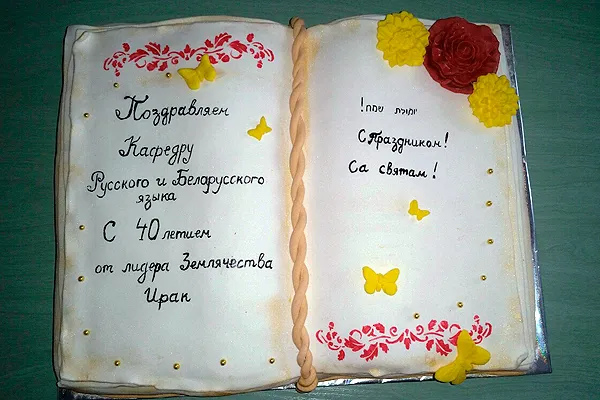 Поздравляем
Кафедру
Русского и Беларусского
языка
С 40 летием
от лидера Землячества
Иран
С Праздником!
Са святам!